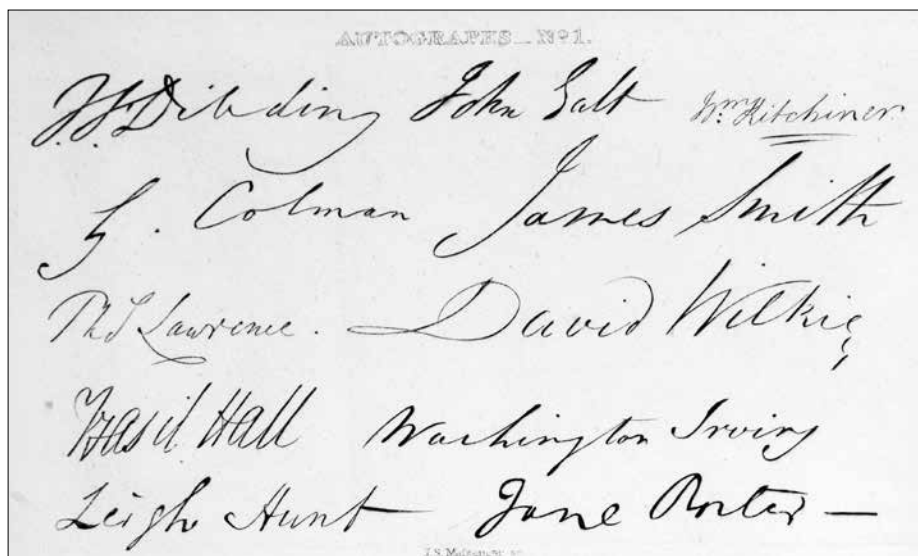 AUTOGRAPHS_Nº1.
John Galt Wm. Kitchiner
G. Colman James Smith
Thos Lawrence. David Wilkie
Basil Hall Washington Irving
Leigh Hunt Jane Porter —